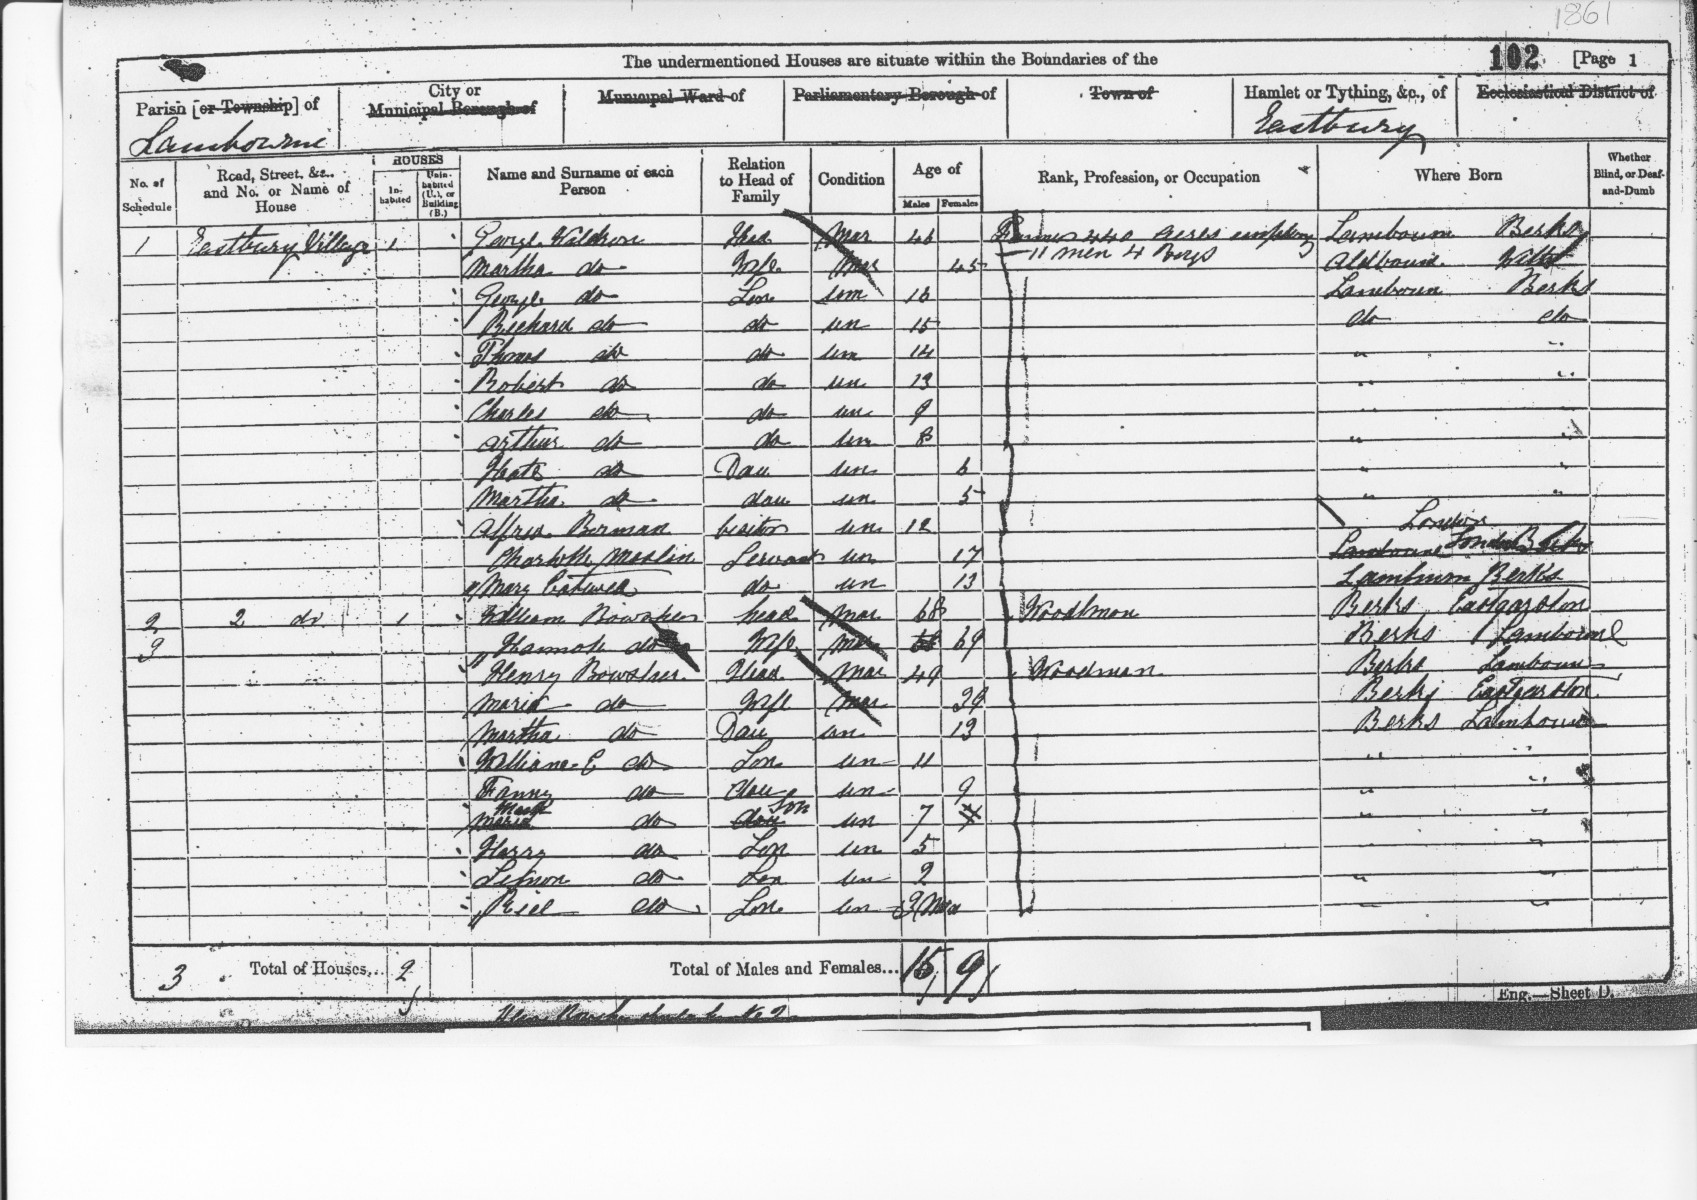 1861
The undermentioned Houses are situate within the Boundaries of the
102 [Page 1
Parish [or Township] of
City or Municipal Borough of
Municipal Ward of
Parliamentary Borough of
Town of
Hamlet or Tything, &c., of
Ecclesiastical District of
Lambourne
Eastbury
No. of Schedule
Road, Street, &c., and No. or Name of House
HOUSES
In-habited
Unin-habited (U.), or Building (B.)
Name and Surname of each Person
Relation to Head of Family
Condition
Age of
Males Females
Rank, Profession, or Occupation
Where Born
Whether Blind, or Deaf-and-Dumb
1 Eastbury Village 1 George Waldron Head Mar 46 Farmer 440 acres employing Lambourn Berks
Martha do Wife Mar 45 11 men 4 Boys Aldbourn Wilts
George do Son unm 16 Lambourn Berks
Richard do do un 15 do do
Thomas do do unm 14 " "
Robert do do un 13 " "
Charles do do un 9
Arthur do do un 8 " "
Kate do Dau un 6 " "
Martha do dau un 5 " "
Alfred Borman visitor un 12 London
Charlotte Maslin Servant un 17 Lambourne London Berks
Mary do un 13 Lambourn Berks
2 2 do 1 William Bowsher head Mar 68 Woodman Berks Eastgarston
3 Hannah do Wife Mar 69 Berks Lambourne
Henry Bowsher Head Mar 49 Woodman Berks Lambourn
Maria do Wife Mar 39 Berks Eastgarston
Martha do Dau un 13 Berks Lambourn
William E do Son un 11 " "
Fanny do dau un 9 " "
Mark
Maria do dau Son un 7 " "
Harry do Son un 5 " "
do Son un 2 " "
do Son un 3 Mo " "
3 Total of Houses... 2
Total of Males and Females... 15 9
Eng.—Sheet D.